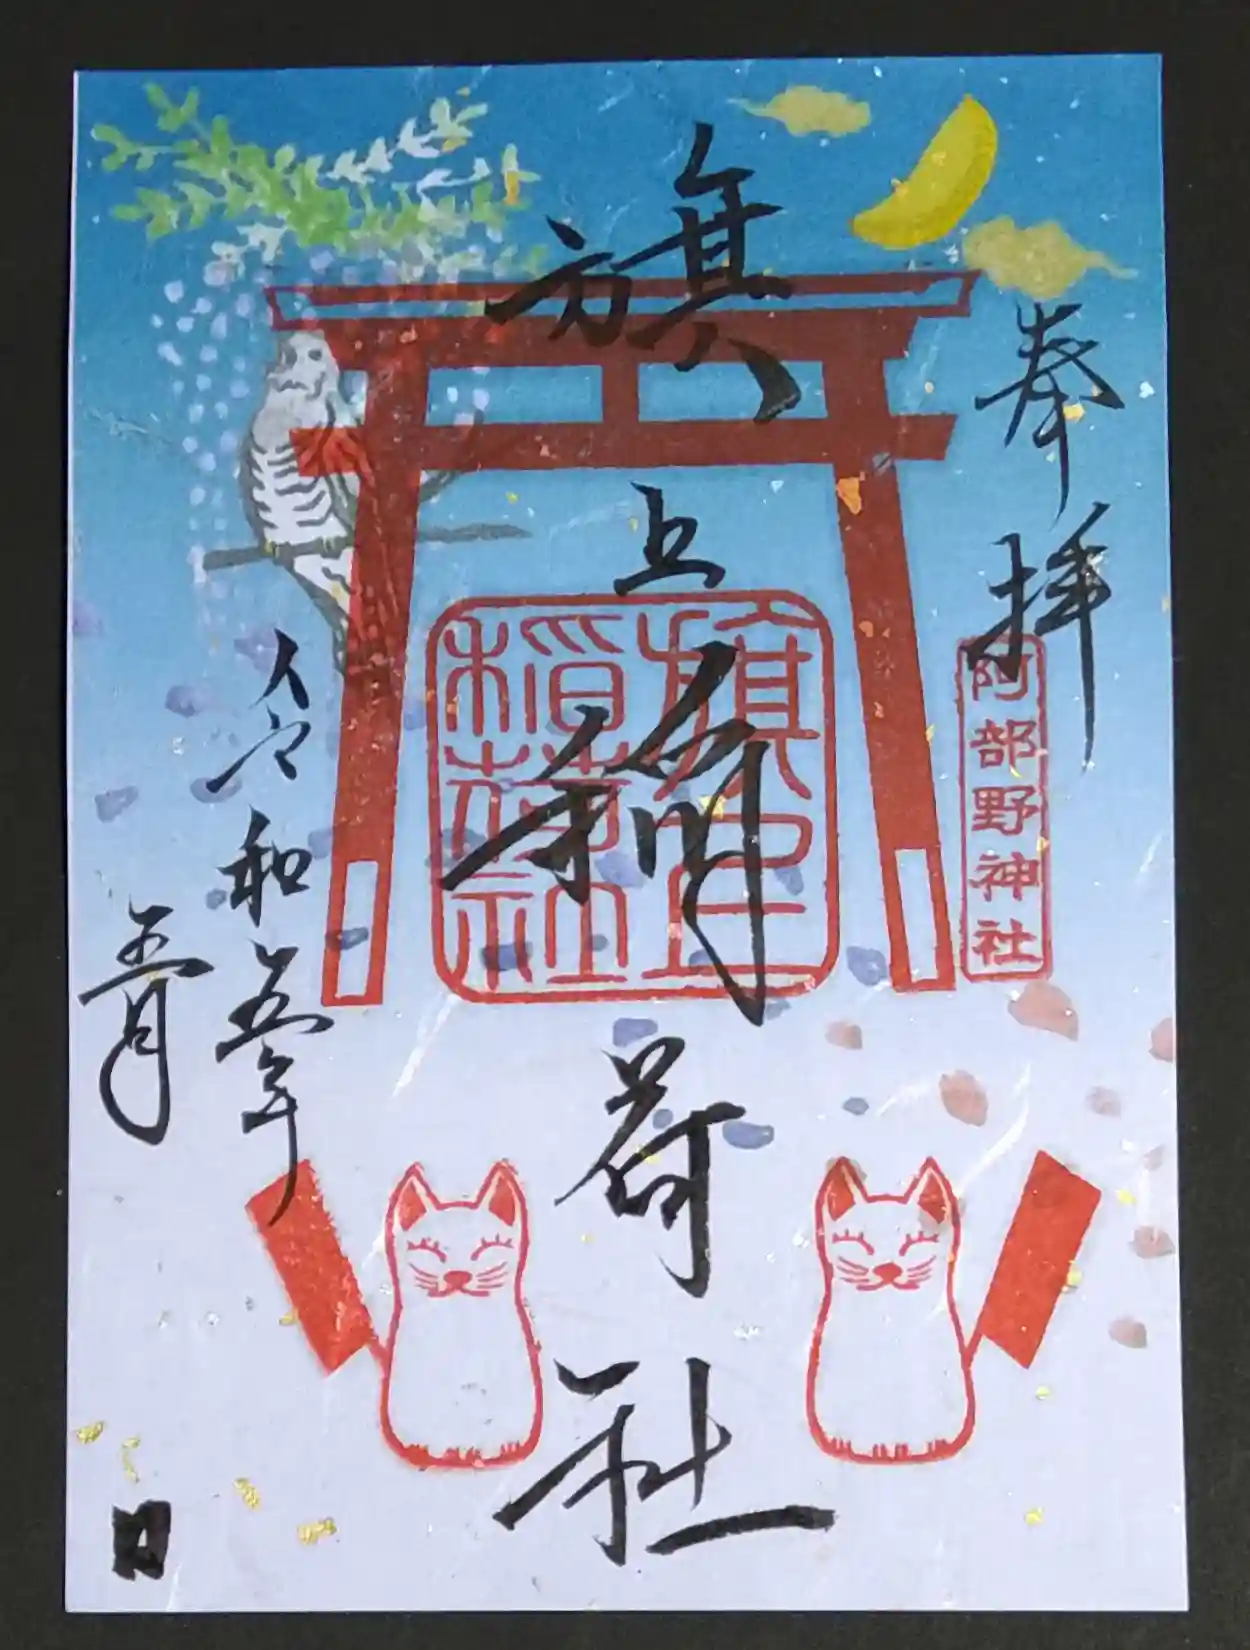 奉拝
阿部野神社
旗上稲荷社
旗上
稲荷社
令和五年
五月
日